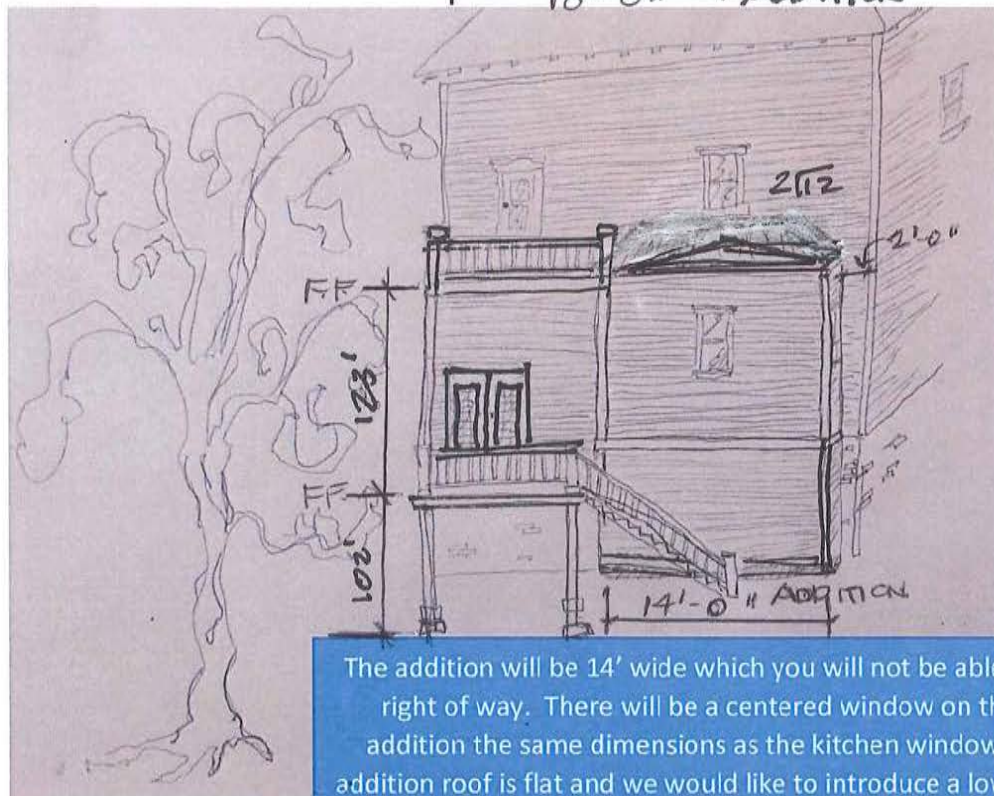 ADDITION
2 12
2'-0"
F.F
123'
F.F
102'
14'-0" ADDITION
The addition will be 14' wide which you will not be able
right of way. There will be a centered window on th
addition the same dimensions as the kitchen window
addition roof is flat and we would like to introduce a low